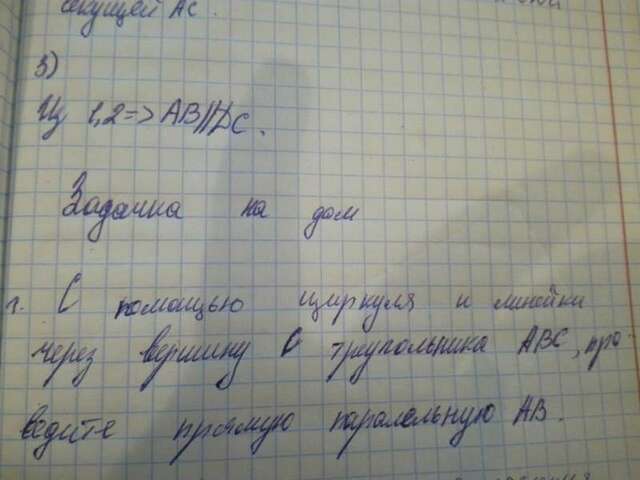 секущей АС.
3)
Из 1,2=> АВ||DС.
Задачка на дом
1. С помощью циркуля и линейки
через вершину С треугольника АВС, про-
ведите прямую паралельную АВ.